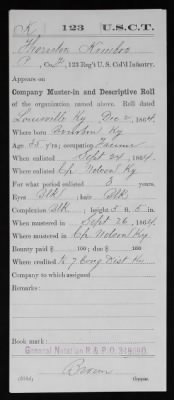 K 123 U.S.C.T.
Thornton Kimbro
P, Co. F, 123 Reg't U.S. Col'd Infantry.
Appears on
Company Muster-in and Descriptive Roll
of the organization named above. Roll dated
Louisville Ky Dec 2, 1864.
Where born Bourbon Ky
Age 35 y'rs; occupation Farmer
When enlisted Sept 24, 1864.
Where enlisted Cp Nelson Ky
For what period enlisted 3 years.
Eyes Blk; hair Blk
Complexion Blk; height 5 ft. 5 in.
When mustered in Sept 26, 1864.
Where mustered in Cp Nelson Ky
Bounty paid $ 100; due $ 100
Where credited K 7 Cong Dist Ky
Company to which assigned
Remarks:
Book mark:
General Notation R & P O
Copyist.